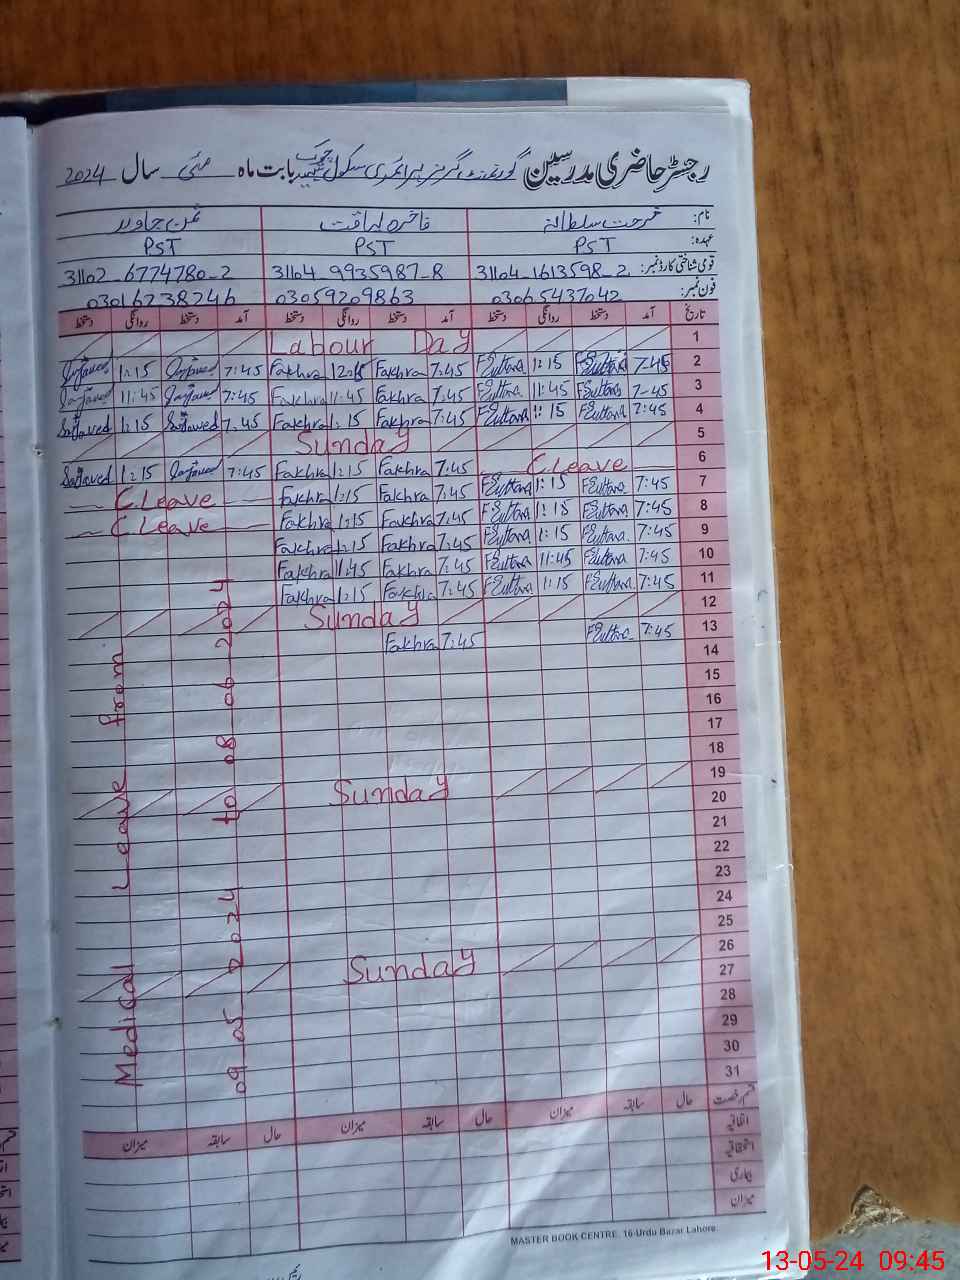 رجسٹر حاضری مدرسین گورنمنٹ گرلز پرائمری سکول چوک شہید بابت ماہ مئی سال 2024
نام: فرحت سلطانہ فاخرہ لیاقت جاوید
عہدہ: PST PST PST
قومی شناختی کارڈ نمبر: 31104-1613598-2 31104-9935987-8 31102-6774780-2
فون نمبر: 03065437042 03059209863 03016738246
تاریخ آمد دستخط روانگی دستخط آمد دستخط روانگی دستخط آمد دستخط روانگی دستخط
1 Labour Day
2 7-45 FSultana 1:15 FSultana 7:45 Fakhra Fakhra 7:45 1:15
3 7-45 FSultana 11:45 FSultana 7:45 Fakhra 11:45 Fakhra 7:45 11:45
4 7:45 FSultana 1:15 FSultana 7:45 Fakhra 1:15 Fakhra 7:45 1:15
5 Sunday
6 C.Leave 7:45 Fakhra 1:15 Fakhra 7:45 1:15
7 7:45 FSultana 1:15 FSultana 7:45 Fakhra 1:15 Fakhra C.Leave
8 7:45 FSultana 1:15 FSultana 7:45 Fakhra 1:15 Fakhra C Leave
9 7:45 FSultana 1:15 FSultana 7:45 Fakhra 1:15 Fakhra
10 7:45 FSultana 11:45 FSultana 7:45 Fakhra 11:45 Fakhra
11 7:45 FSultana 1:15 FSultana 7:45 Fakhra 1:15 Fakhra
12 Sunday
13 7:45 FSultana 7:45 Fakhra
14
15
16
17
18
19 Sunday
20
21
22
23
24
25
26 Sunday
27
28
29
30
31
Medical Leave from
09-05-2024 to 08-06-2024
قسم رخصت حال سابقہ میزان حال سابقہ میزان حال سابقہ میزان
اتفاقیہ
استحقاقیہ
بیماری
میزان
MASTER BOOK CENTRE. 16-Urdu Bazar Lahore.
13-05-24 09:45